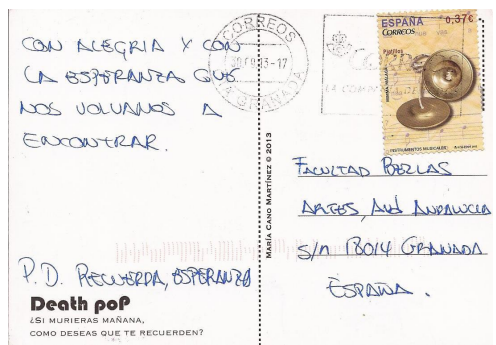 CON ALEGRIA Y CON
LA ESPERANZA QUE
NOS VOLVAMOS A
ENCONTRAR.
P.D. RECUERDA, ESPERANZA
Death poP
¿SI MURIERAS MAÑANA,
COMO DESEAS QUE TE RECUERDEN?
MARÍA CANO MARTÍNEZ © 2013
CORREOS
GRANADA
ESPAÑA 0,37€
CORREOS
Pistillos
INSTRUMENTOS MUSICALES
FACULTAD BELLAS
ARTES, AVD ANDALUCIA
S/N 18014 GRANADA
ESPAÑA.